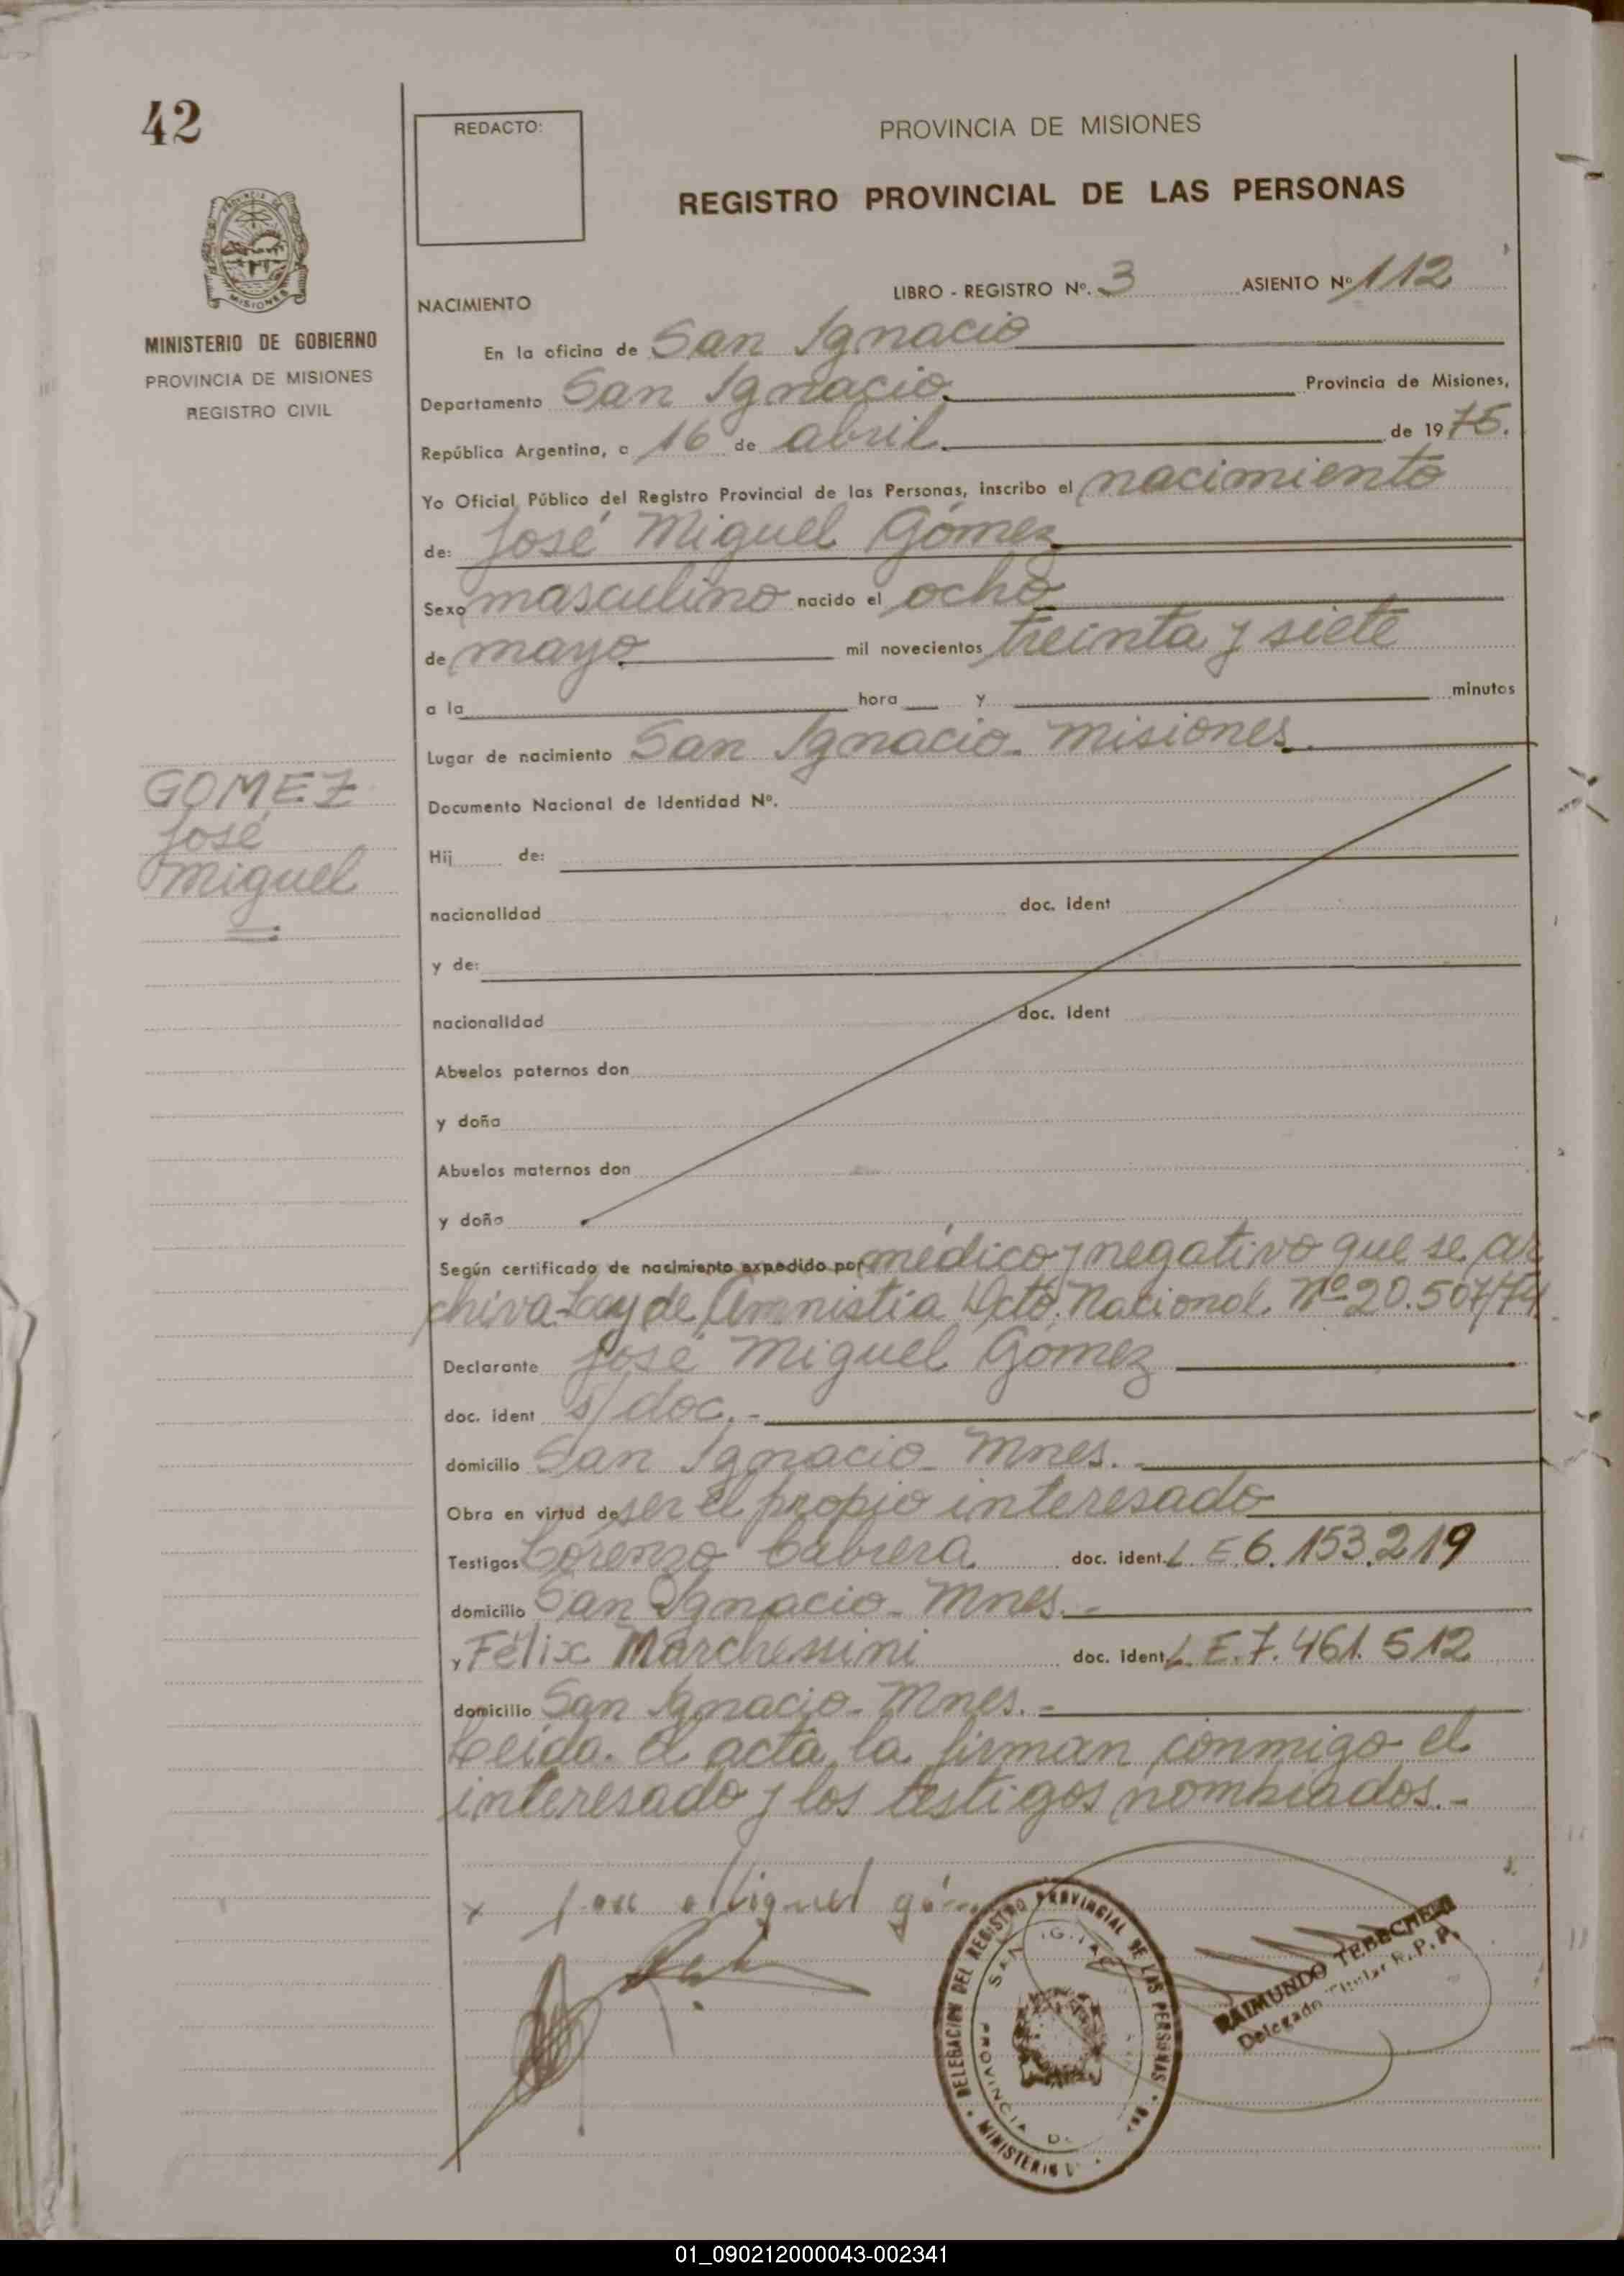 42
REDACTO:
PROVINCIA DE MISIONES
REGISTRO PROVINCIAL DE LAS PERSONAS
MISIONES
MINISTERIO DE GOBIERNO
PROVINCIA DE MISIONES
REGISTRO CIVIL
NACIMIENTO
LIBRO - REGISTRO Nº. 3 ASIENTO Nº 112
En la oficina de San Ignacio
Departamento San Ignacio. Provincia de Misiones,
República Argentina, a 16 de abril. de 1975.
Yo Oficial Público del Registro Provincial de las Personas, inscribo el nacimiento
de: José Miguel Gómez
Sexo masculino nacido el ocho
de mayo mil novecientos treinta y siete
a la hora y minutos
Lugar de nacimiento San Ignacio - Misiones.
GOMEZ
José
Miguel
Documento Nacional de Identidad Nº.
Hij de:
nacionalidad doc. ident
y de:
nacionalidad doc. ident
Abuelos paternos don
y doña
Abuelos maternos don
y doña
Según certificado de nacimiento expedido por médico y negativo que se ar
chiva - Ley de Amnistia Dcto. Nacional. Nº 20.507/74
Declarante José Miguel Gómez
doc. ident s/doc. -
domicilio San Ignacio - Mnes. -
Obra en virtud de ser el propio interesado
Testigos Lorenzo Cabrera. doc. ident. L. E. 6. 153. 219
domicilio San Ignacio - Mnes. -
y Félix Marchessini doc. ident. L. E. 7. 461. 512
domicilio San Ignacio - Mnes. -
Leida el acta, la firman conmigo el
interesado y los testigos nombrados. -
x Jose Miguel
DELEGACION DEL REGISTRO PROVINCIAL DE LAS PERSONAS
MINISTERIO
SAN
PROVINCIA
RAIMUNDO
Delegado Titular R.P.P.
01_090212000043-002341